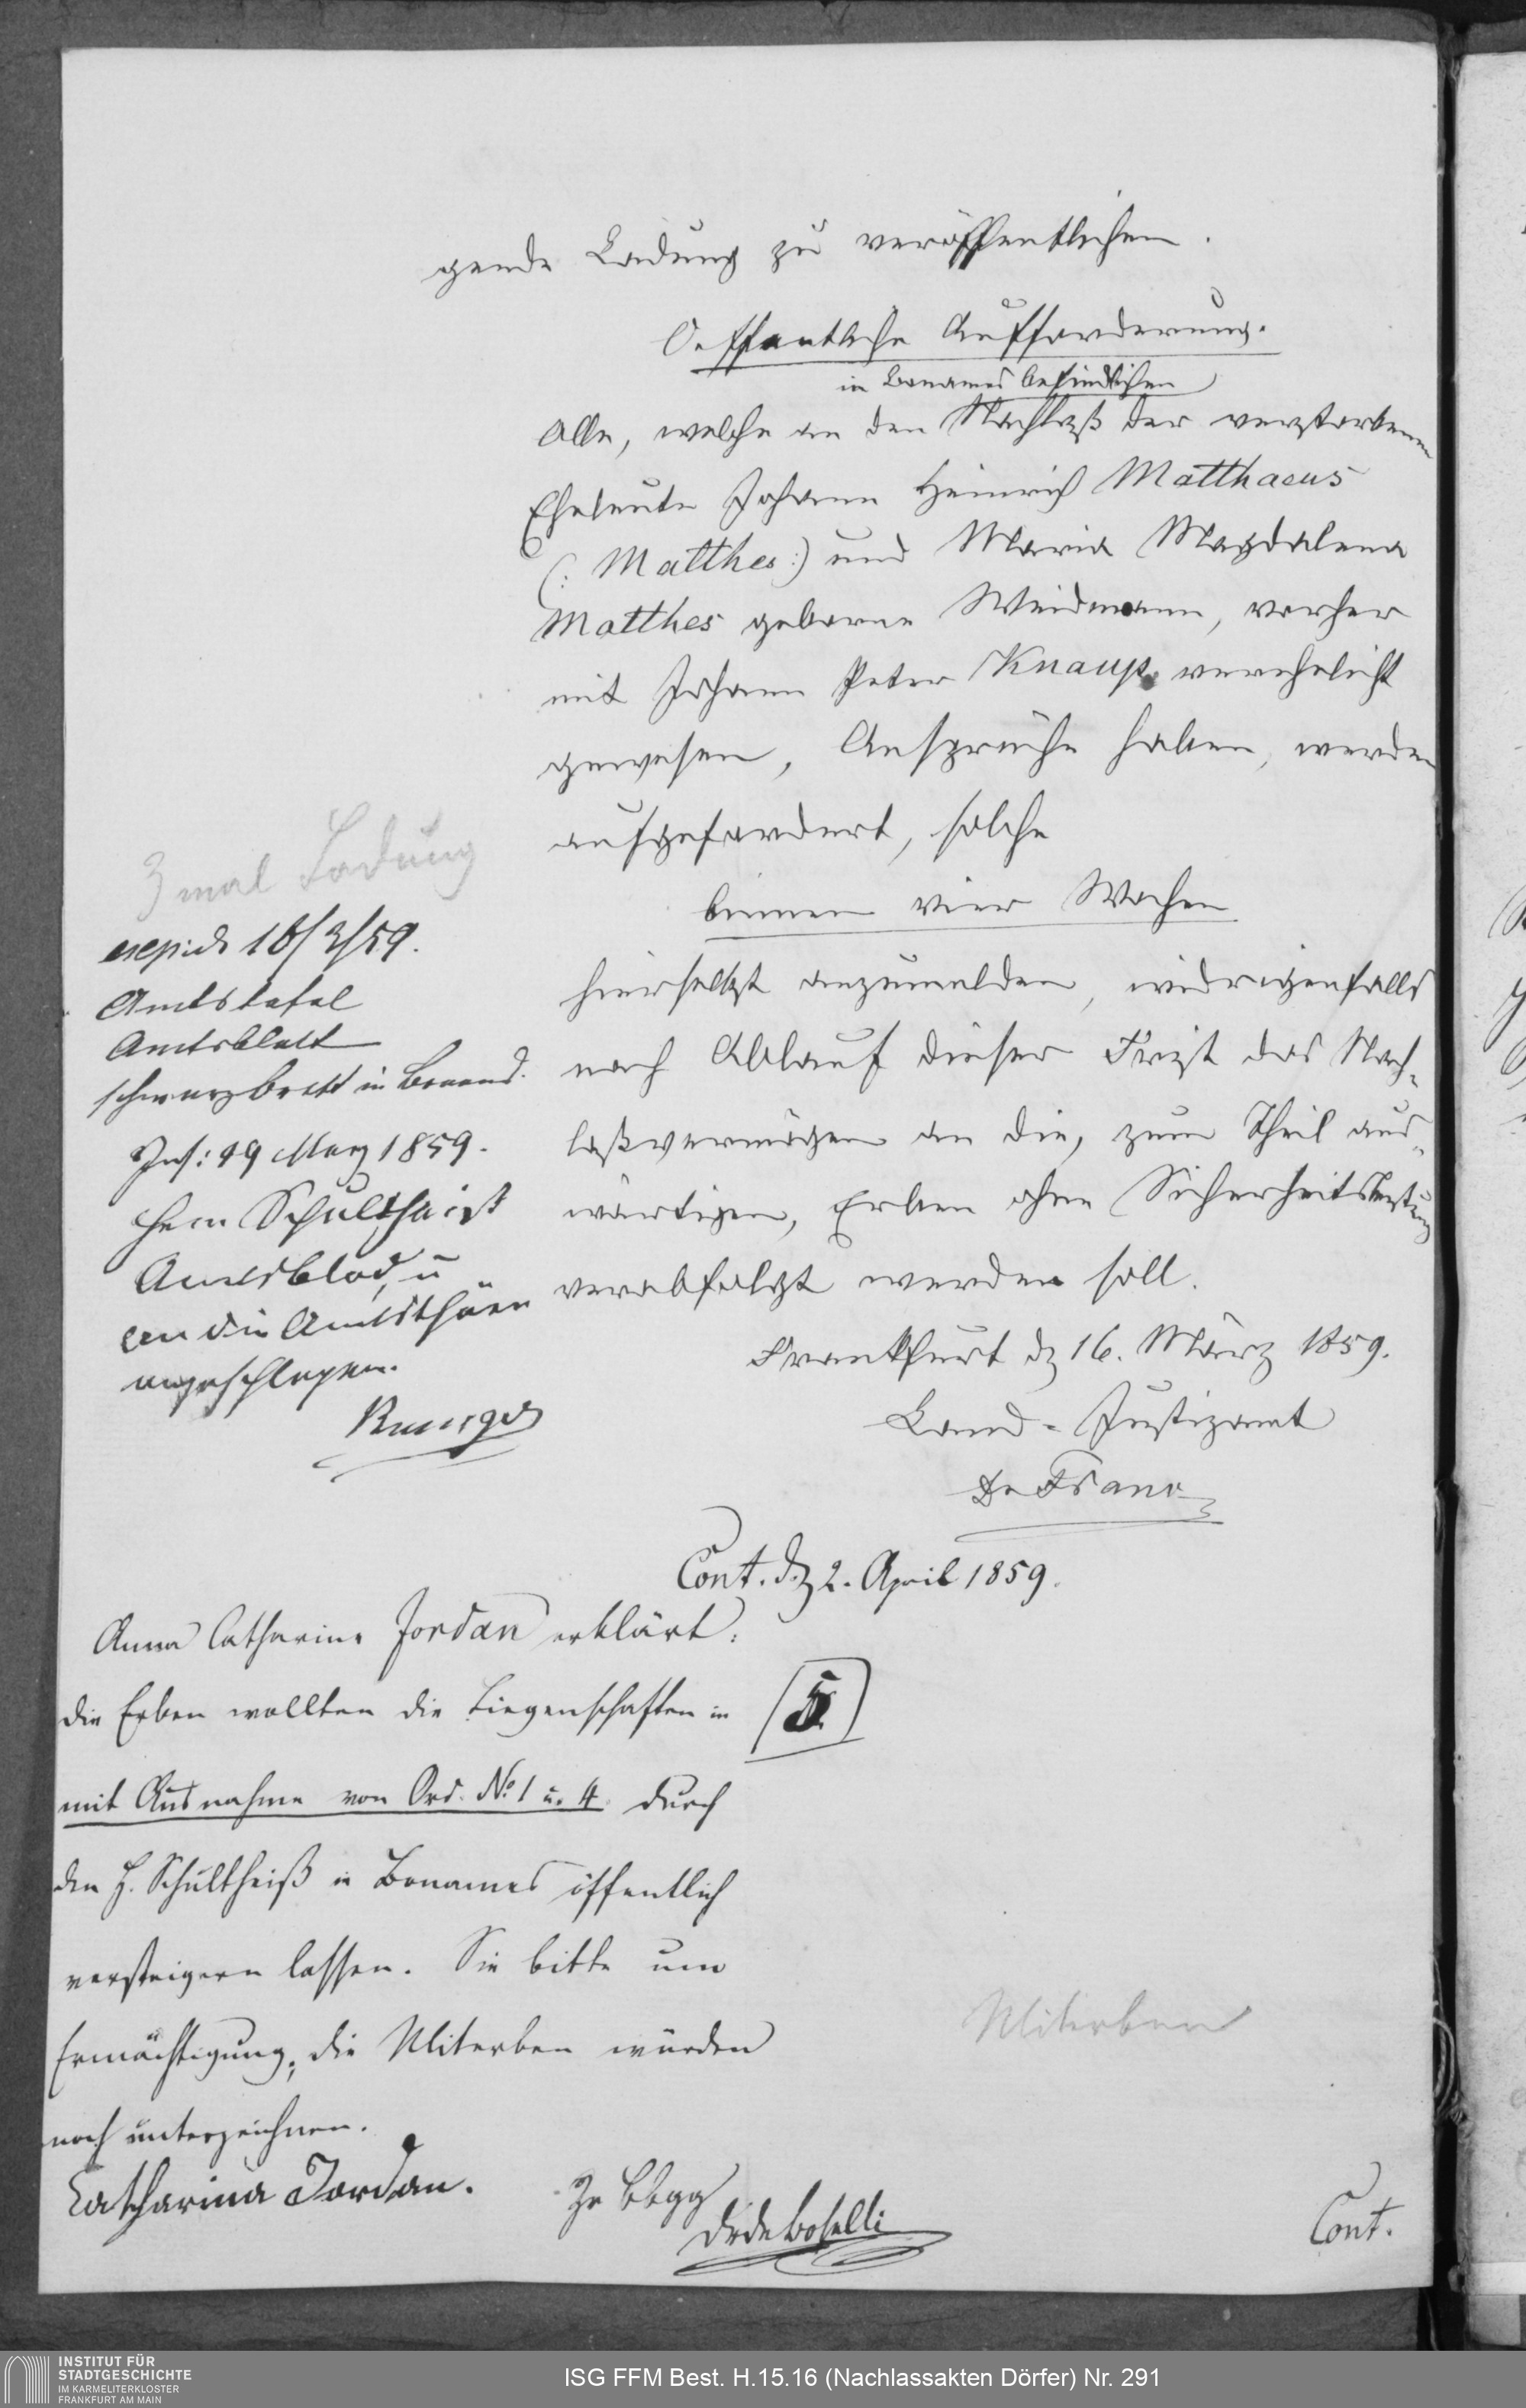 gende Ladung zu veröffentlichen.
Oeffentliche Aufforderung.
in Bonames befindlichen
Alle, welche an den Nachlaß der verstorbenen
Eheleute Johann Heinrich Matthaeus
(: Matthes :) und Maria Magdalena
Matthes geborne Weidmann, vorher
mit Johann Peter Knaup verehelicht
gewesen, Ansprüche haben, werden
aufgefordert, solche
binnen vier Wochen
hierselbst anzumelden, widrigenfalls
nach Ablauf dieser Frist das Nach-
laßvermögen an die, zum Theil aus-
wärtigen, Erben ohne Sicherheitsleistung
verabfolgt werden soll.
Frankfurt d. 16. März 1859.
Land-Justizamt
3 mal Ladung
18/3/59.
Amtstafel
Amtsblatt
schwarz brett in
Ins: 19 Merz 1859.
Herrn Schultheist
Amtsblad, u
an die Amtsthüre
angeschlagen.
Cont. d. 2. April 1859.
Anna Catharine Jordan erklärt:
die Erben wollten die Liegenschaften in
5.
mit Ausnahme von Ord. No. 1 u. 4. durch
den H. Schultheiß in Bonames öffentlich
versteigern lassen. Sie bitte um
Ermächtigung, die Miterben würden
noch unterzeichnen.
Miterben
Catharina Jordan.
Zr Bbgg
Dr de Boselli
Cont.
INSTITUT FÜR
STADTGESCHICHTE
IM KARMELITERKLOSTER
FRANKFURT AM MAIN
ISG FFM Best. H.15.16 (Nachlassakten Dörfer) Nr. 291